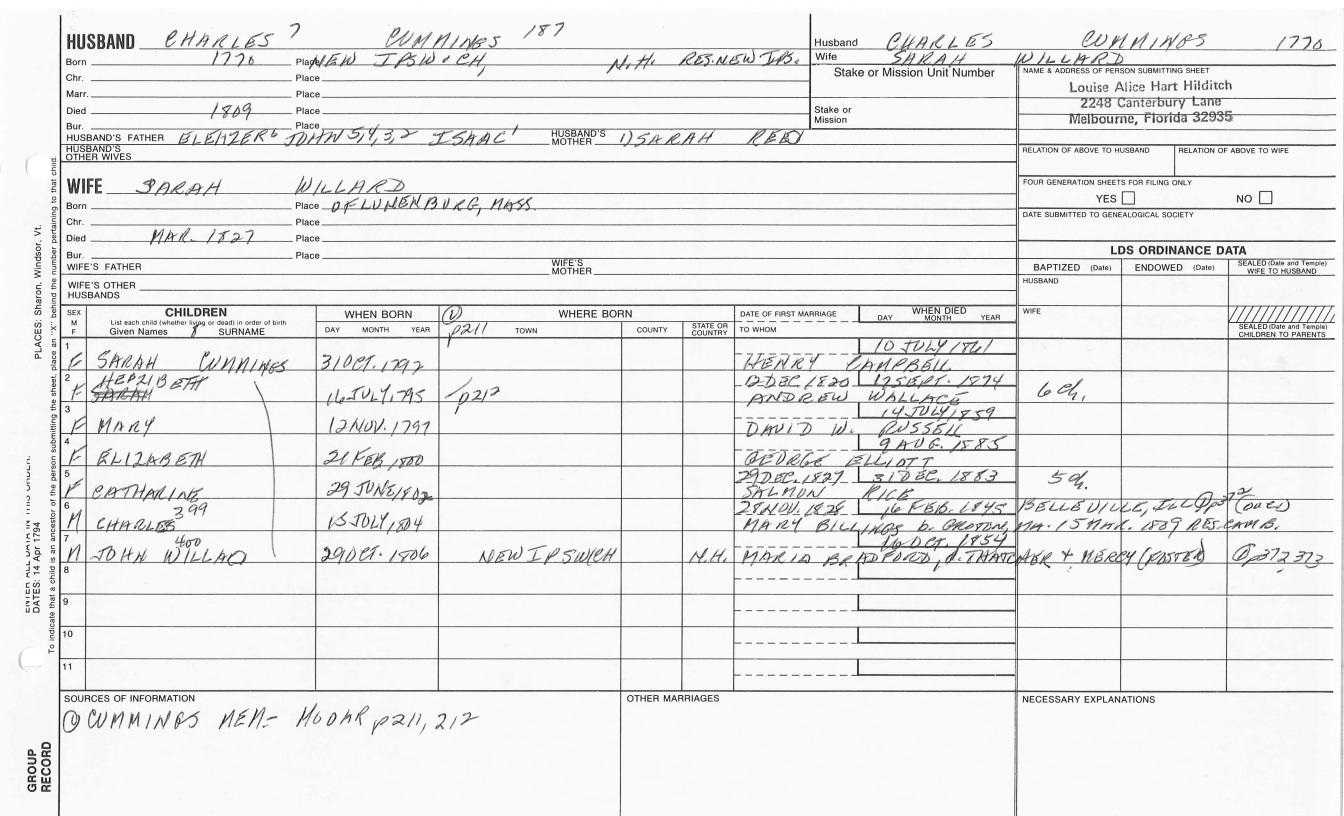 HUSBAND CHARLES 7 CUMMINGS 187
Born 1770 Place NEW IPSWICH, N.H. RES. NEW IPS.
Chr. Place
Marr. Place
Died 1809 Place
Bur. Place
HUSBAND'S FATHER ELEAZER 6 JOHN 5,4,3,2 ISAAC 1 HUSBAND'S MOTHER 1) SARAH REED
HUSBAND'S OTHER WIVES
Husband CHARLES CUMMINGS 1770
Wife SARAH WILLARD
Stake or Mission Unit Number
Stake or Mission
NAME & ADDRESS OF PERSON SUBMITTING SHEET
Louise Alice Hart Hilditch
2248 Canterbury Lane
Melbourne, Florida 32935
RELATION OF ABOVE TO HUSBAND RELATION OF ABOVE TO WIFE
FOUR GENERATION SHEETS FOR FILING ONLY
YES NO
DATE SUBMITTED TO GENEALOGICAL SOCIETY
WIFE SARAH WILLARD
Born Place OF LUNENBURG, MASS.
Chr. Place
Died MAR. 1827 Place
Bur. Place
WIFE'S FATHER WIFE'S MOTHER
WIFE'S OTHER HUSBANDS
LDS ORDINANCE DATA
BAPTIZED (Date) ENDOWED (Date) SEALED (Date and Temple) WIFE TO HUSBAND
HUSBAND
WIFE
SEALED (Date and Temple) CHILDREN TO PARENTS
SEX M F
CHILDREN
List each child (whether living or dead) in order of birth
Given Names 8 SURNAME
WHEN BORN
DAY MONTH YEAR
(1) p211
WHERE BORN
TOWN COUNTY STATE OR COUNTRY
DATE OF FIRST MARRIAGE
TO WHOM
WHEN DIED
DAY MONTH YEAR
1 F SARAH CUMMINGS 31 OCT. 1792 10 JULY 1861
HENRY CAMPBELL
2 F HEPZIBETH SARAH 16 JULY, 1795 p212 12 DEC. 1820 12 SEPT. 1874 6 ch.
ANDREW WALLACE
3 F MARY 12 NOV. 1797 14 JULY 1859
DAVID W. RUSSELL
4 F ELIZABETH 21 FEB 1800 9 AUG. 1885
GEORGE ELLIOTT
5 F CATHARINE 29 JUNE 1802 29 DEC. 1827 31 DEC. 1883 5 ch.
SALMON RICE
6 M CHARLES 399 15 JULY 1804 28 NOV. 1828 16 FEB. 1845 BELLEVILLE, ILL (1) p372
MARY BILLINGS b. GROTON, MA. 15 MAR. 1889 RES. CAMB.
7 M JOHN WILLARD 400 29 OCT. 1806 NEW IPSWICH N.H. 16 OCT. 1854
MARIA BRADFORD, d. THATCHER & MERCY (FOSTER) (1) p372, 373
8
9
10
11
SOURCES OF INFORMATION
(1) CUMMINGS MEM - MOOAR p211, 212
OTHER MARRIAGES
NECESSARY EXPLANATIONS
PLACES: Sharon, Windsor, Vt.
ENTER ALL DATA IN THIS ORDER:
DATES: 14 Apr 1794
To indicate that a child is an ancestor of the person submitting the sheet, place an "X" behind the number pertaining to that child.
GROUP RECORD